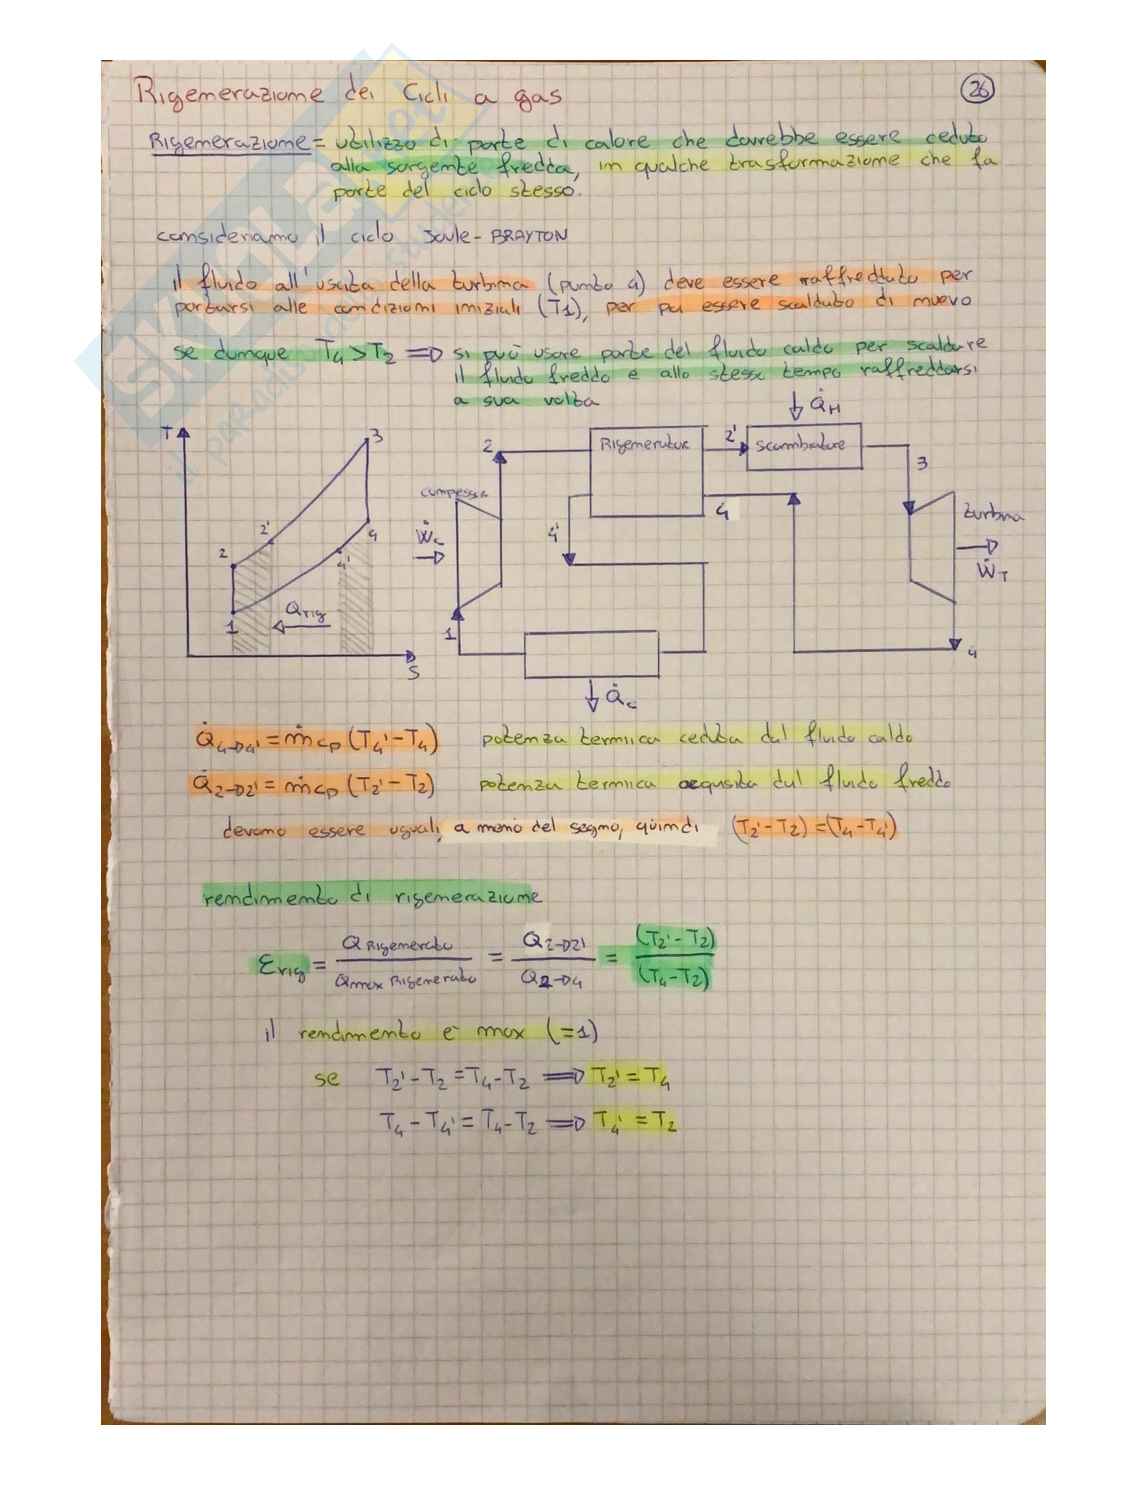 Rigenerazione dei Cicli a gas
26
Rigenerazione = utilizzo di parte di calore che dovrebbe essere ceduto
alla sorgente fredda, in qualche trasformazione che fa
parte del ciclo stesso.
consideriamo il ciclo Joule-BRAYTON
il fluido all'uscita della turbina (punto 4) deve essere raffreddato per
portarsi alle condizioni iniziali (T1), per poi essere scaldato di nuovo
se dunque T4 > T2 ⇒ si può usare parte del fluido caldo per scaldare
il fluido freddo e allo stesso tempo raffreddarsi
a sua volta
Q̇H
T
3
2
Rigeneratore
2'
scambiatore
3
compressore
2'
4
4
turbina
2
4'
Ẇc
4'
ẆT
Qrig
1
1
4
S
Q̇c
Q̇4→4' = ṁcp (T4' - T4) potenza termica ceduta dal fluido caldo
Q̇2→2' = ṁcp (T2' - T2) potenza termica acquisita dal fluido freddo
devono essere uguali, a meno del segno, quindi (T2' - T2) = (T4 - T4')
rendimento di rigenerazione
εrig = Q Rigenerato / Qmax Rigenerato = Q2→2' / Q2→4 = (T2' - T2) / (T4 - T2)
il rendimento è max (=1)
se T2' - T2 = T4 - T2 ⇒ T2' = T4
T4 - T4' = T4 - T2 ⇒ T4' = T2